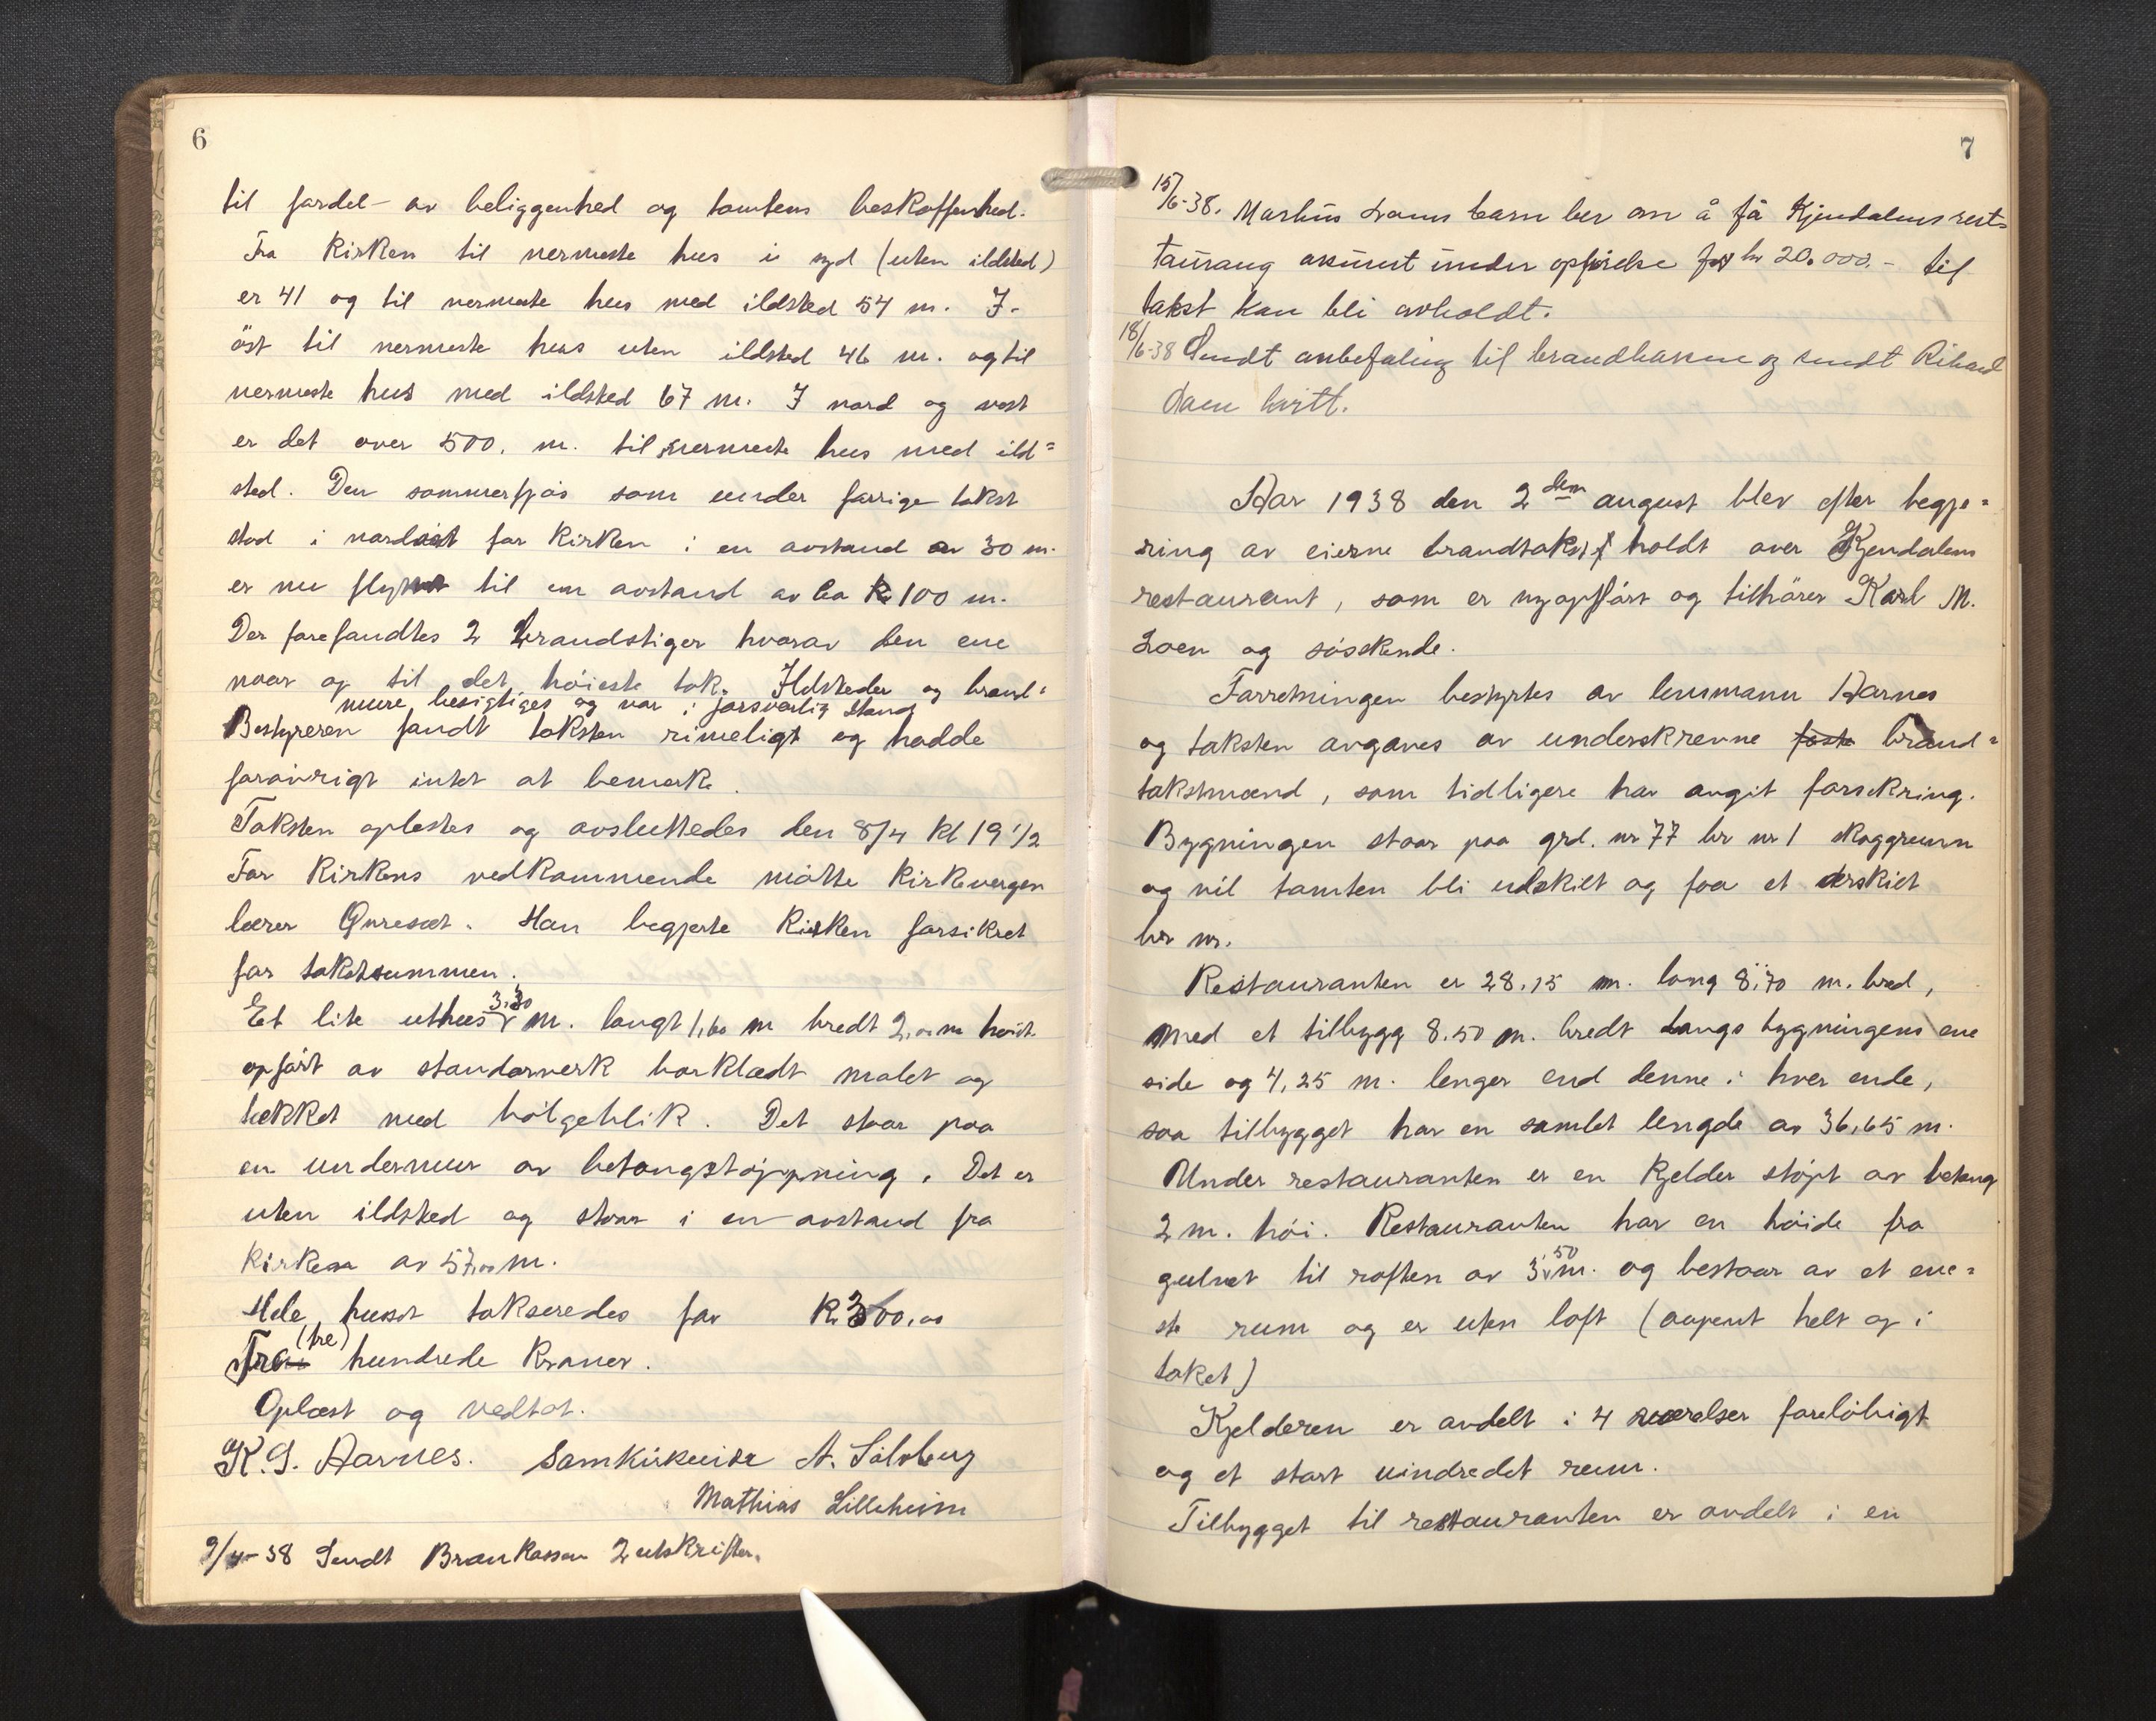 6
til fordel av beliggenhed og tomtens beskaffenhed.
Fra Kirken til nermeste hus i syd (uten ildsted)
er 41 og til nermeste hus med ildsted 54 m. I
öst til nermeste hus uten ildsted 46 m. og til
nermeste hus med ildsted 67 m. I nord og vest
er det over 500. m. til nermeste hus med ild=
sted. Den sommerfjøs som under forrige takst
stod i nordöst for Kirken i en avstand av 30 m.
er nu flyttet til en avstand av ca 100 m.
Der forefandtes 2 brandstiger hvorav den ene
naar op til det höieste tak. Ildsteder og brand=
mure besigtiges og var i forsvarlig stand
Bestyreren fandt taksten rimeligt og hadde
forövrigt intet at bemerke.
Taksten oplestes og avsluttedes den 8/4 Kl 19 1/2
For Kirkens vedkommende mötte Kirkevergen
lærer Qvresæt. Han begjerte Kirken forsikret
for takstsummen.
Et lite uthus 3.30 m. langt 1,60 m bredt 2,00 m høit
opført av standerverk bordklædt malet og
tækket med bölgeblik. Det staar paa
en undermur av betongstøpning. Det er
uten ildsted og staar i en avstand fra
Kirken av 57,00 m.
Hele huset takseredes for Kr 300,00
(tre) hundrede Kroner.
Oplæst og vedtat.
K. S. Aarnes. A. Sølvberg
Mathias Lilleheim
9/4-38 Sendt Brankassen 2 utskrifter.
7
15/6-38. Markus Loens barn ber om å få Kjendalens rest=
taurang assurert under opførelse for kr 20.000.- til
takst kan bli avholdt.
18/6-38 Sendt anbefaling til brandkassen og sendt Rikard
Loen kvitt.
Aar 1938 den 2den august blev efter begjæ=
ring av eierne brandtakst holdt over Kjendalens
restaurant, som er nyopført og tilhörer Karl M.
Loen og søsskende.
Forretningen bestyrtes av lensmann Aarnes
og taksten avgaves av underskrevne faste brand=
takstmænd, som tidligere har avgit forsikring.
Bygningen staar paa grd. nr 77 br nr 1 skoggrunn
og vil tomten bli utskilt og faa et særskilt
br nr.
Restauranten er 28,15 m. lang 8,70 m. bred,
med et tilbygg 8.50 m. bredt langs bygningens ene
side og 4,25 m. lenger end denne i hver ende,
saa tilbygget har en samlet lengde av 36,65 m.
Under restauranten er en Kjelder støpt av betong
2 m. høi. Restauranten har en høide fra
gulvet til raften av 3,50 m. og bestaar av et ene=
ste rum og er uten loft (aapent helt op i
taket)
Kjelderen er avdelt i 4 værelser foreløbigt
og et stort uindredet rum.
Tilbygget til restauranten er avdelt i en